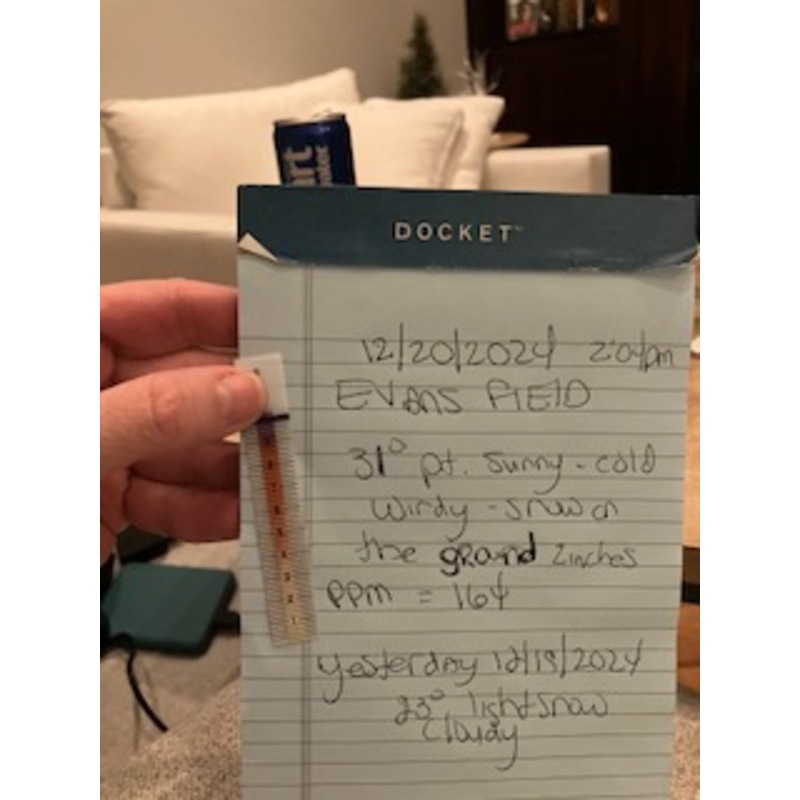 DOCKET™
12/20/2024 2:04pm
EVANS FIELD
31° pt. sunny - cold
windy - snow on
the ground 2inches
ppm = 164
yesterday 12/19/2024
23° light snow
cloudy